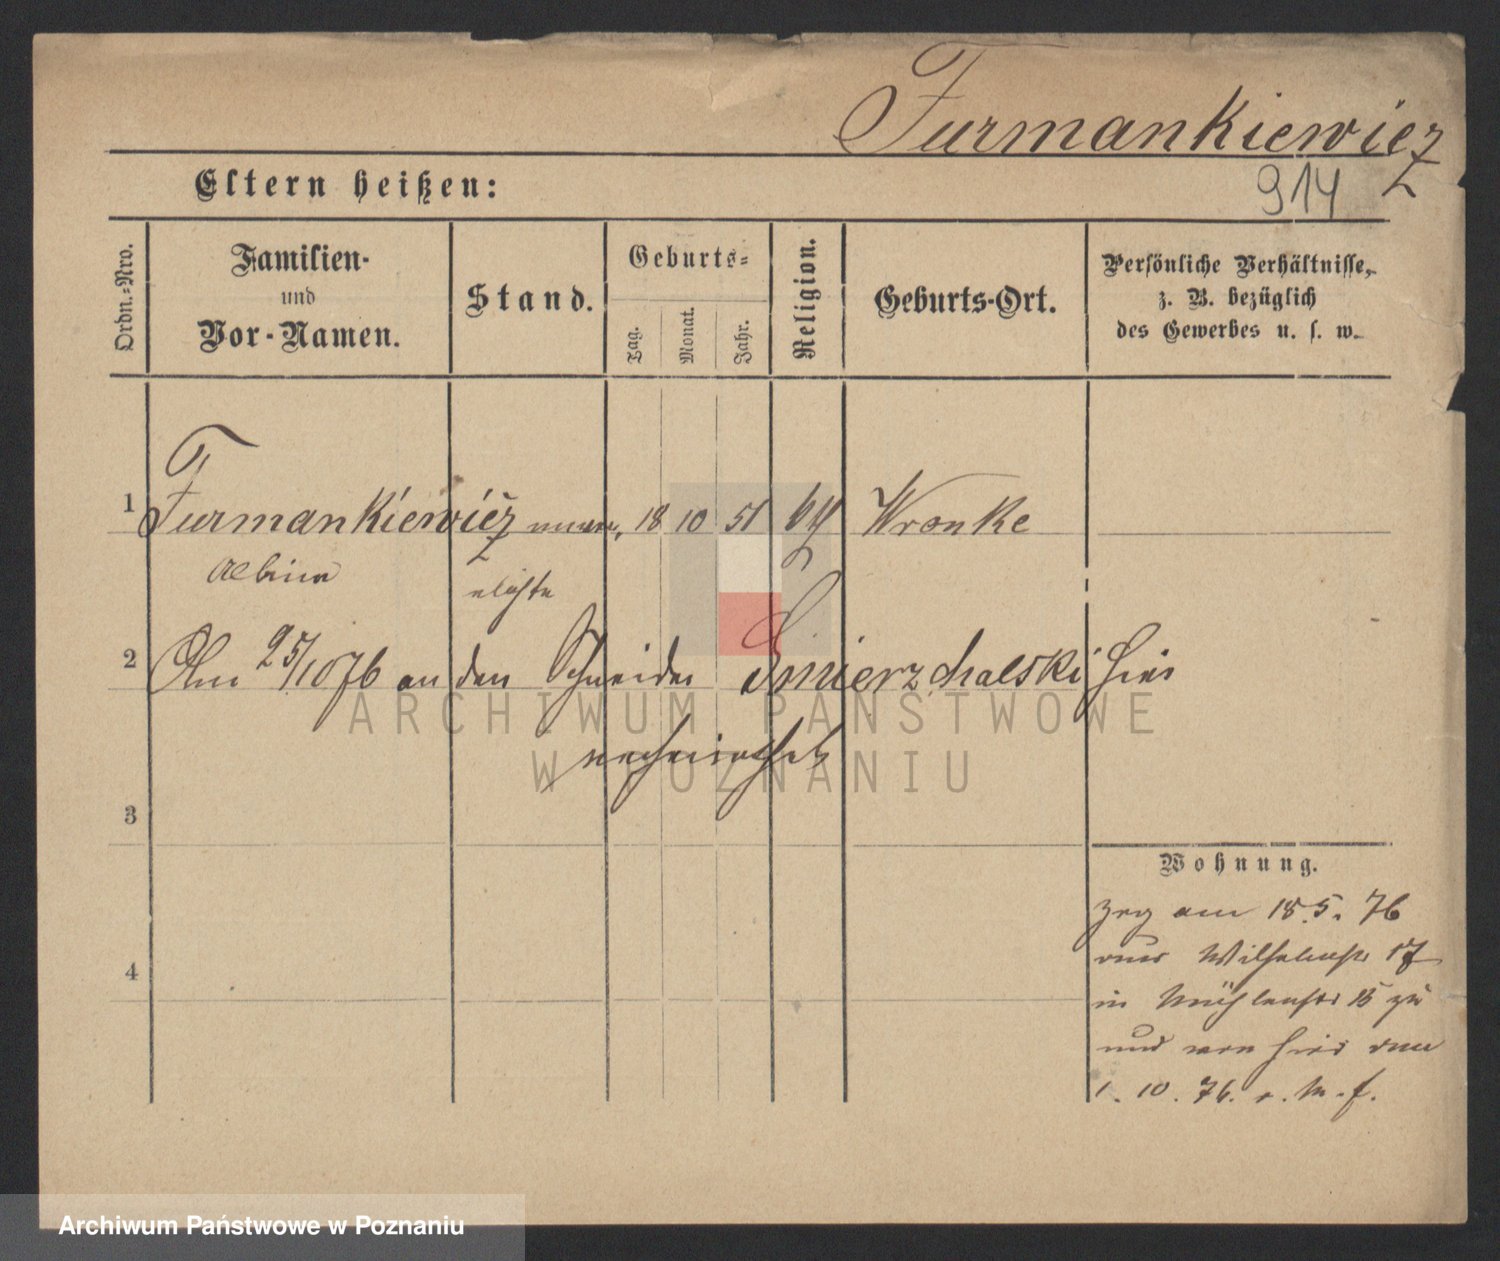 Furmankiewicz
914
Eltern heißen:
Ordn.-Nro.
Familien-
und
Vor-Namen.
Stand.
Geburts-
Tag.
Monat.
Jahr.
Religion.
Geburts-Ort.
Persönliche Verhältnisse,
z. B. bezüglich
des Gewerbes u. s. w.
1 Furmankiewicz unver, 18 10 51 Wronke
Albina elichte
2 Am 25/10 76 an den Schneider Smierzchalski hier
verheirathet
3
4
Wohnung.
Zog am 18.5.76
aus Wilhelmstr 17
in Mühlenstr 15 zu
und von hier am
1.10.76.
ARCHIWUM PAŃSTWOWE
W POZNANIU
Archiwum Państwowe w Poznaniu